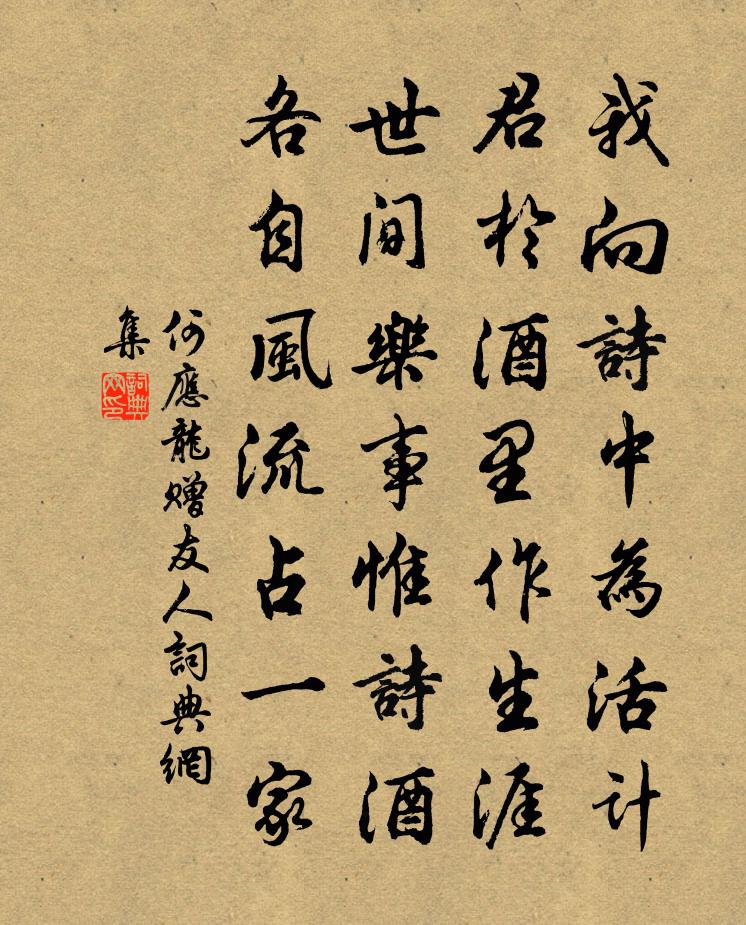 我向詩中為活計
君於酒里作生涯
世间樂事惟詩酒
各自風流占一家
何應龍贈友人詞典網
集
詞典網印